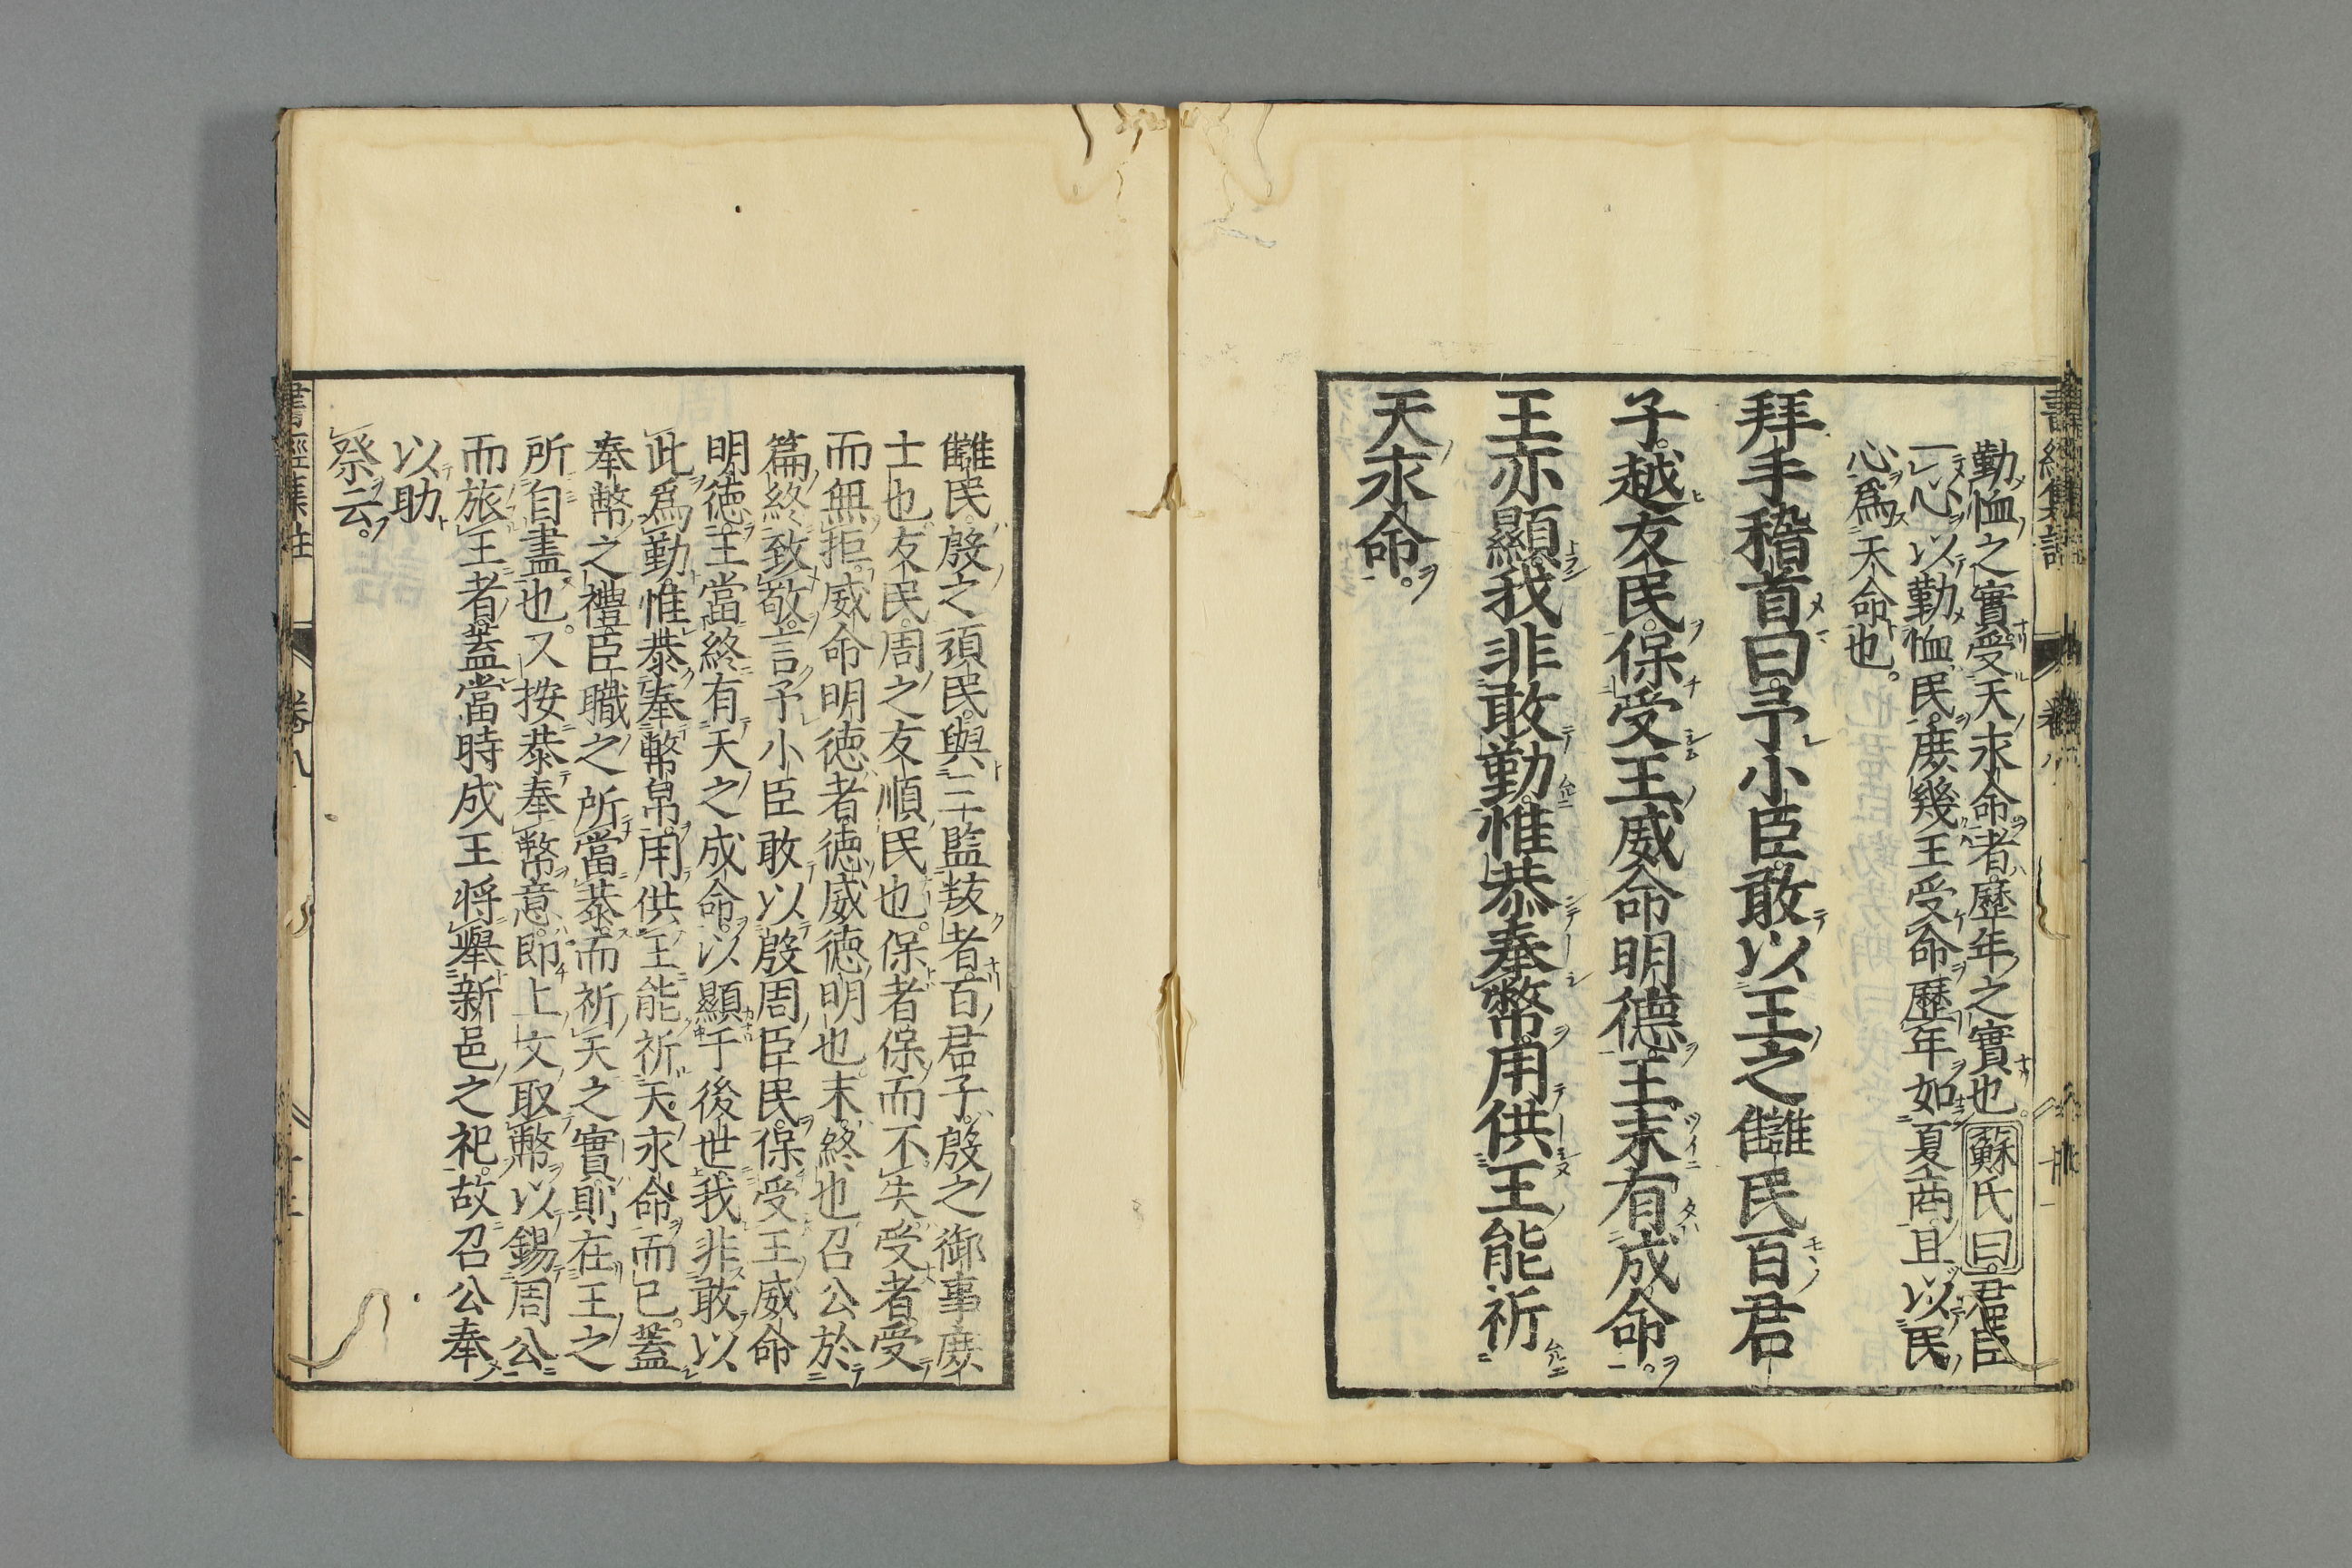 勤恤之實受天永命者歷年之實也蘇氏曰君臣
一心以勤恤民庶幾王受命歷年如夏商且以民
心爲天命也
拜手稽首曰予小臣敢以王之讎民百君
子越友民保受王威命明德王末有成命
王亦顯我非敢勤惟恭奉幣用供王能祈
天永命
讎民殷之頑民與三監叛者百君子殷之御事庶
士也友民周之友順民也保者保而不失受者受
而無拒威命明德者德威德明也末終也召公於
篇終致敬言予小臣敢以殷周臣民保受王威命
明德王當終有天之成命以顯于後世我非敢以
此爲勤惟恭奉幣帛用供王能祈天永命而已蓋
奉幣之禮臣職之所當恭而祈天之實則在王之
所自盡也又按恭奉幣意即上文取幣以錫周公
而旅王者蓋當時成王将舉新邑之祀故召公奉
以助
祭云
書經集註
卷八